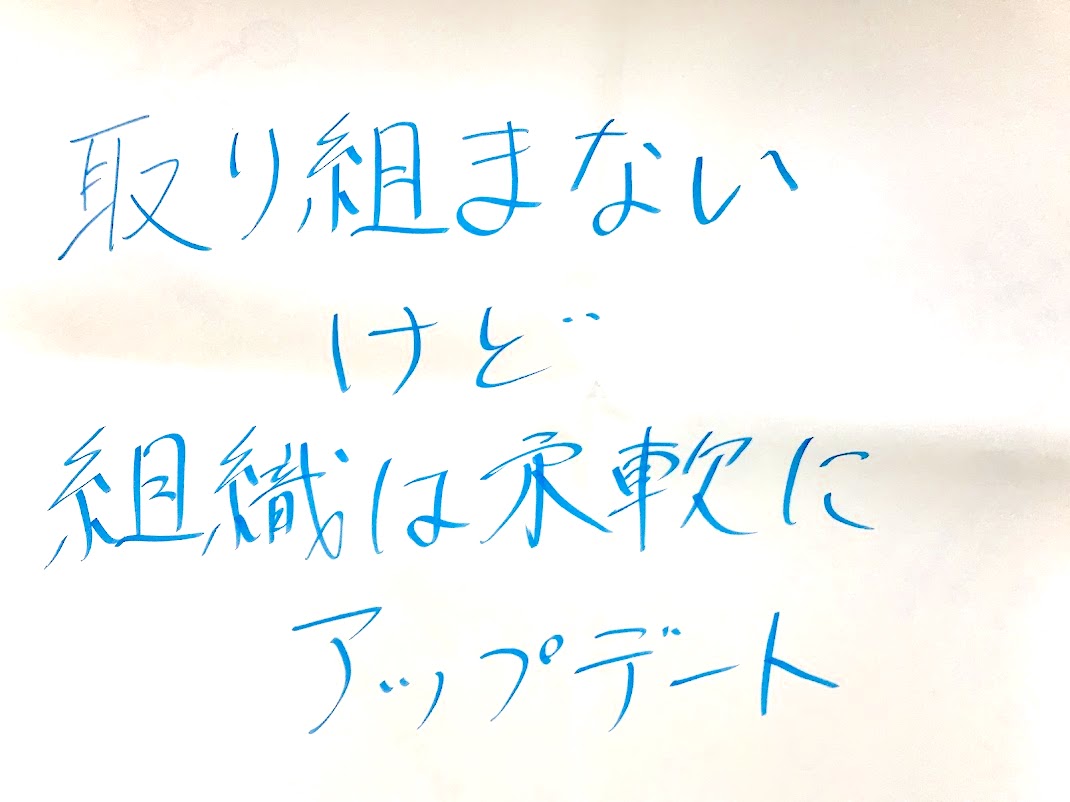 取り組まない
けど
組織は柔軟に
アップデート